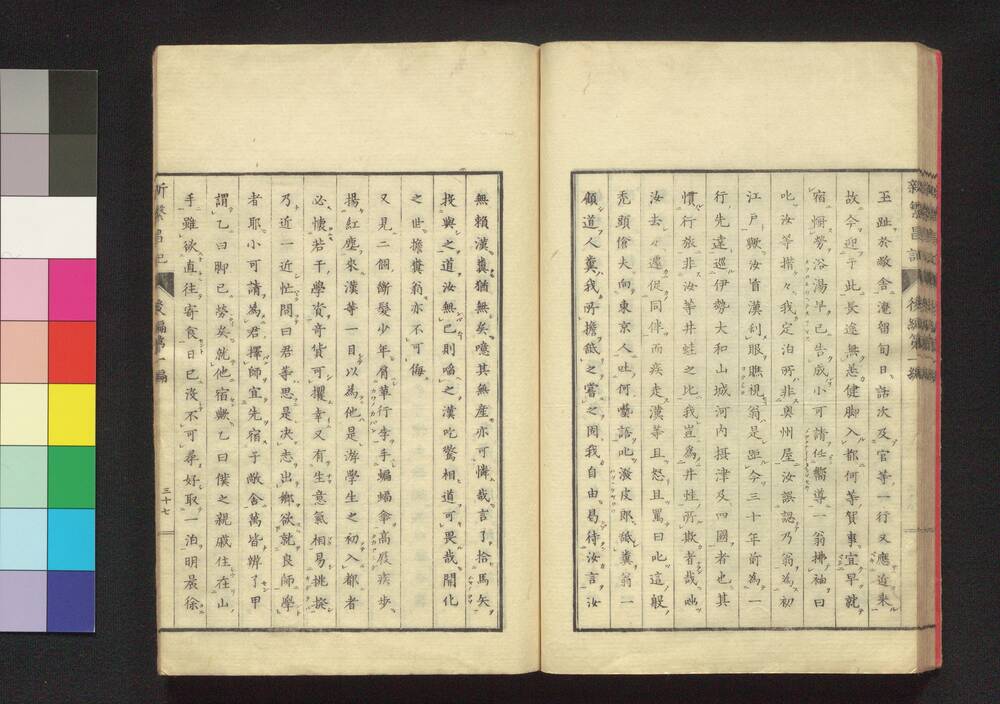 玉趾於敝舍淹留旬日、話次及官等一行又應近來
故今迎于此長途無恙健脚入都何等賀事宜早就
宿慚勞浴湯早已告成小可請任嚮導一翁拂袖曰
叱汝等措々我定泊所非奥州屋汝誤認乃翁為初
江戸歟汝盲漢刮眼瞧視翁是距今三十年前為一
行先達巡伊勢大和山城河内摂津及四國者也其
慣行旅非汝等井蛙之比我豈為井蛙所欺者哉咄
汝去々遽促同伴而疾走漢等且怒且罵曰叱這般
禿頭傖夫向東京人吐何囈語叱潑皮郎舐糞翁一
顧道人糞我所擔舐之嘗之固我自由曷待汝言汝
無賴漢糞猶無矣噫其無産亦可憐哉言了拾馬矢
投與之道汝無己則啗之漢吃驚相道可畏哉開化
之世擔糞翁亦不可侮
又見二個斷髮少年肩華行李手蝙蝠傘高屐疾步
揚紅塵來漢等一目以為他是游學生之初入都者
必懷若干學資奇貨可攫幸又有生意氣相易挑撥
乃近一近忙問曰君等思是決志出鄉欲就良師學
者耶小可請為君擇師宜先宿于敝舍萬皆辨了甲
謂乙曰脚已勞矣就他宿歟乙曰僕之親戚住在山
手雖欲直往寄食日已沒不可尋好取一泊明晨徐
新繁昌記
後編第一編
三十七
新繁昌記
後編第一編